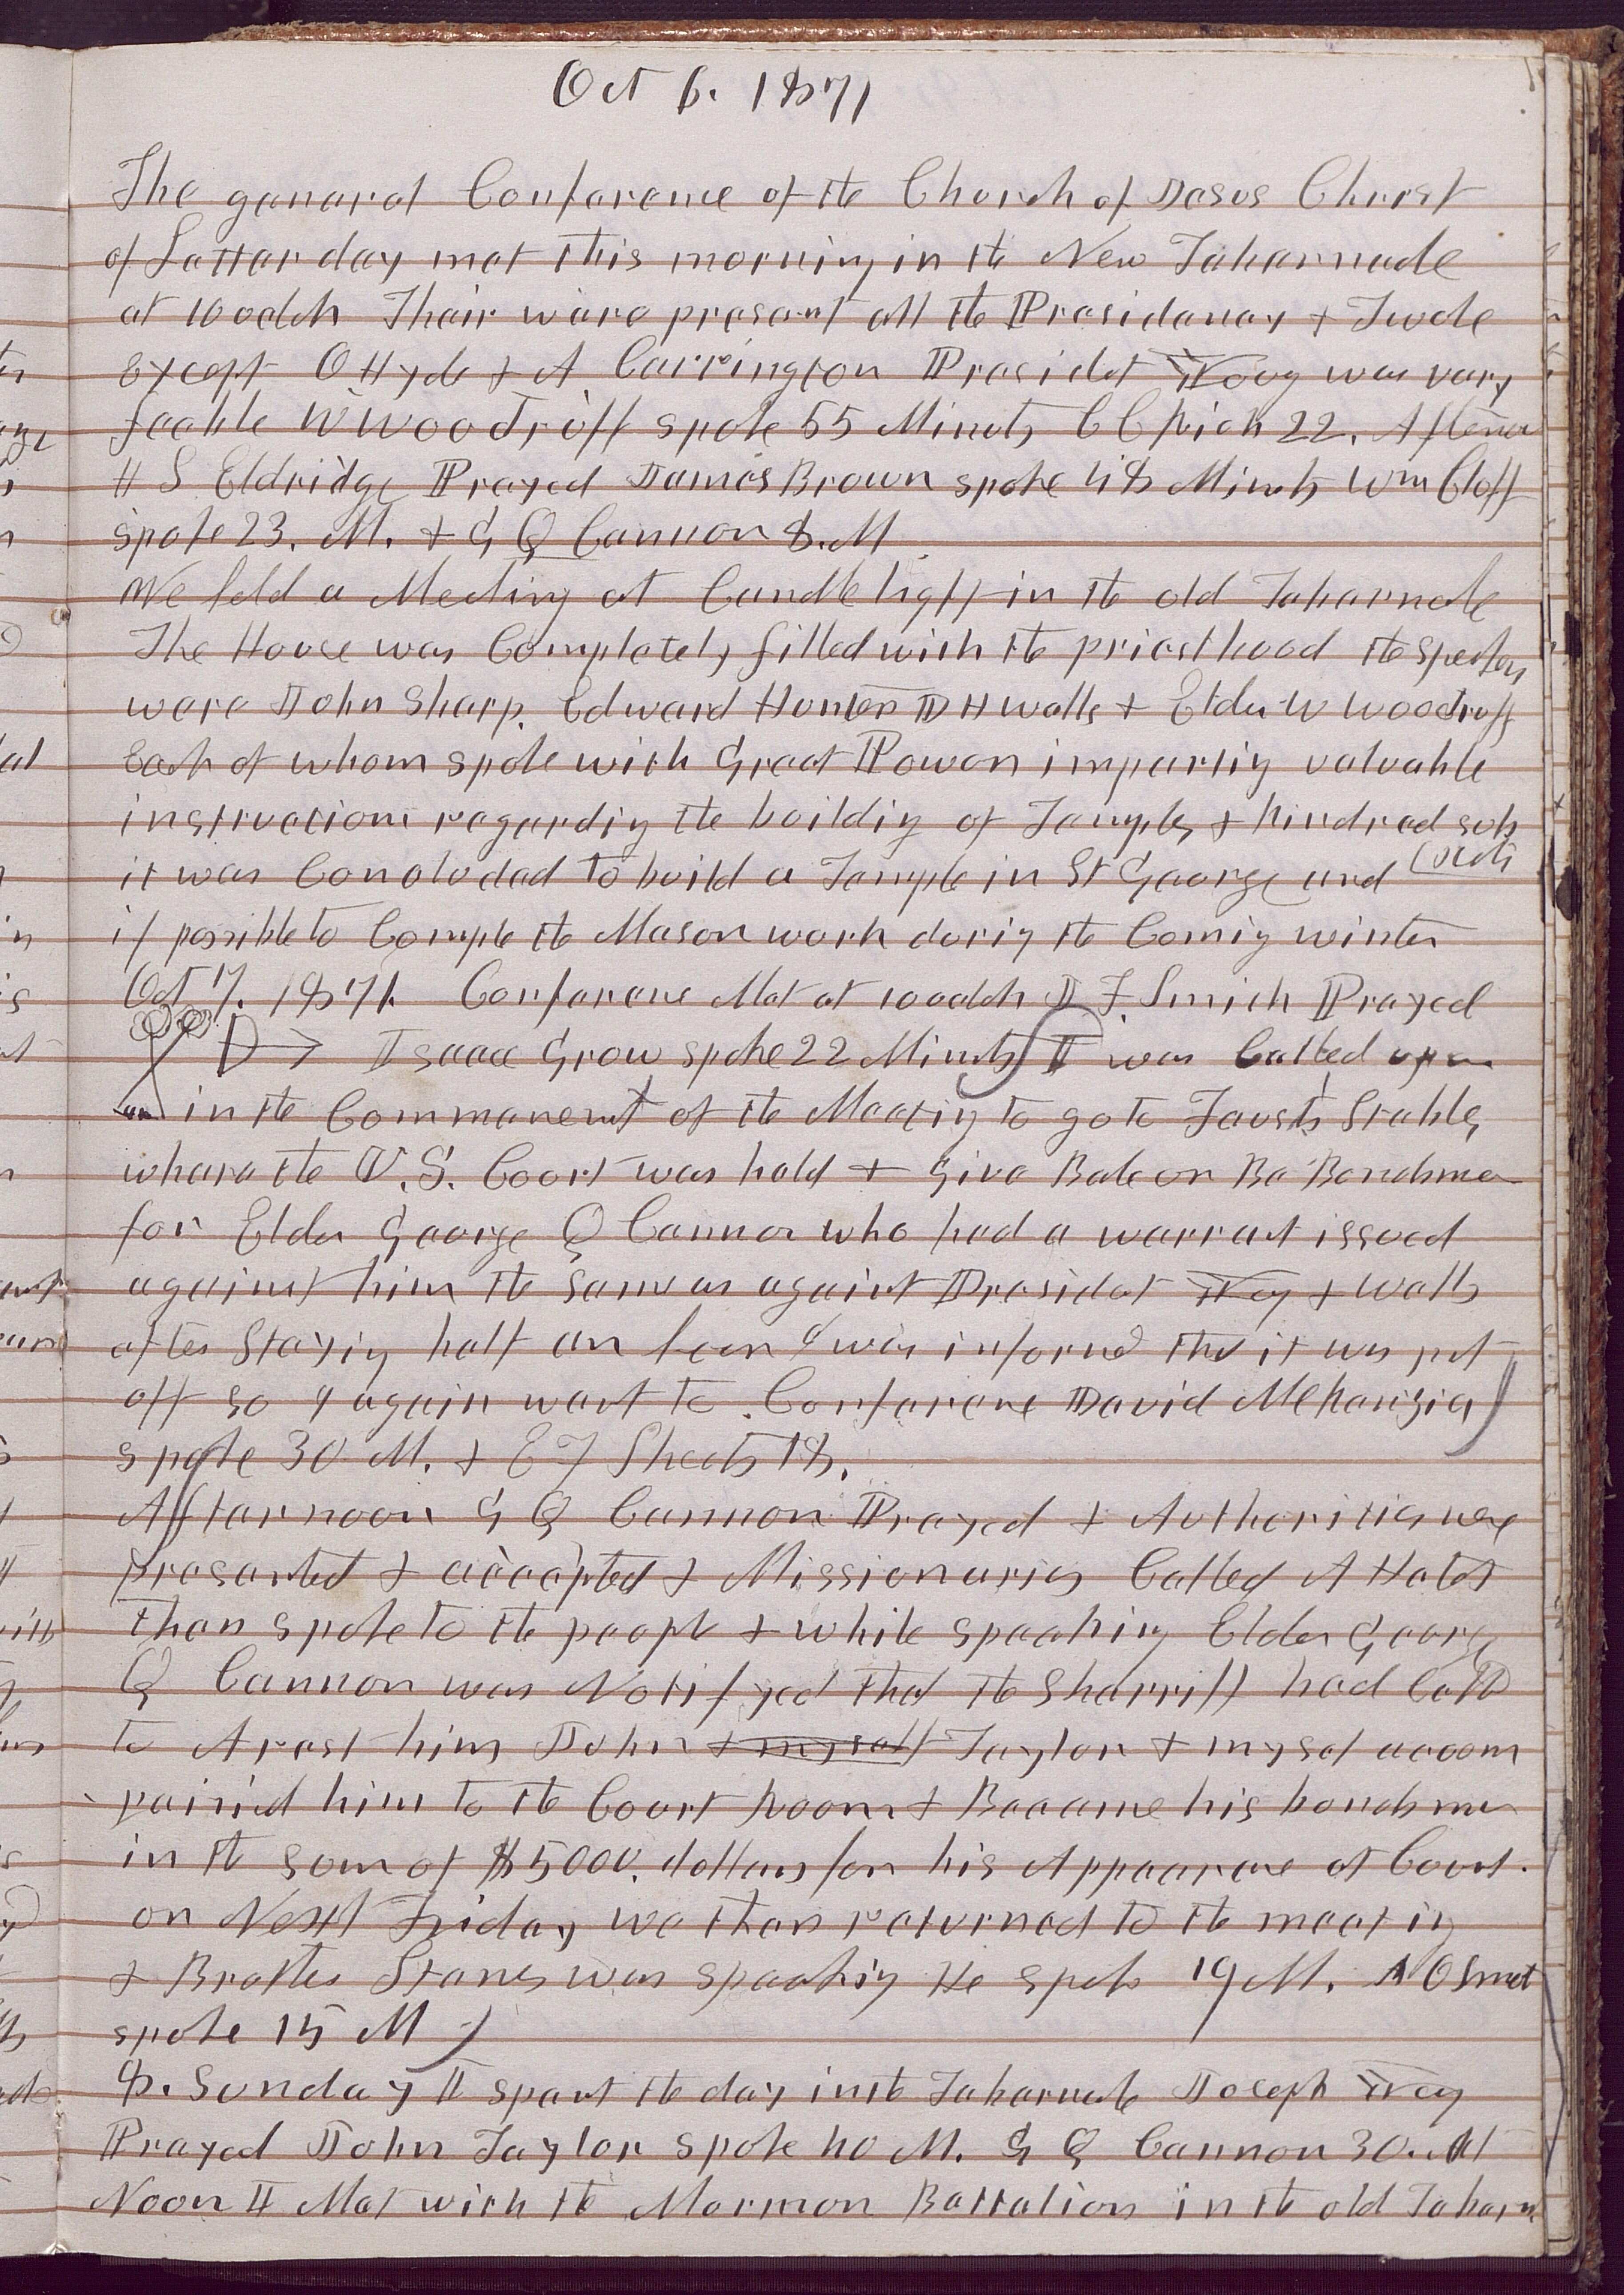 Oct 6. 1871
The general Conference of the Church of Jesus Christ
of Latter day met this morning in the New Tabernacle
at 10 oclok Their were present all the Presidency & Twele
Except O Hyde & A Carrington Presidet Young was very
feeble W Woodruff spoke 55 Minuts C C Rich 22. Afternoon
H S Eldridge Prayed James Brown spoke 48 Minuts Wm Cloff
spoke 23. M. & G Q Cannon 8. M
We held a Meeting at Candle light in the old Tabernacle
The House was Completely filled with the priesthood the speakers
were John Sharp. Edward Hunter D H Wells & Elder W Woodruff
Each of whom spoke with Great Power imparting valuable
instructions regarding the building of Temples & kindred sub
jects
it was Concluded to build a Temple in St George and
if possible to Comple the Mason work during the Coming winter
Oct 7. 1871. Conference Met at 10 oclok J F. Smith Prayed
Isaac Grow spoke 22 Minuts I was Called upon
in the Commencment of the Meeting to go to Fausts Stables
where the U.S. Court was held & give Bale or Be Bondsmen
for Elder George Q Cannon who had a warrant issued
against him the same as against Presidet Young & Wells
after Staying half an hour I was informed that it was put
off so I again went to Conference David McKenzie
spoke 30 M. & E F Sheets 18.
Afternoon G Q Cannon Prayed & Authorities were
presented & accepted & Missionaries Called A Hatch
then spoke to the people & while speaking Elder George
Q Cannon was Notifyed that the Sherriff had Calld
to Arest him John & myself Taylor & myself accom
panied him to the Court Room & Became his bondsmen
in the sum of $5000. dollars for his Appearance at Court.
on Next Friday we then returned to the meeting
& Brother Staines was speaking He spoke 19 M. A O Smoot
spoke 15 M
8. Sunday I spent the day in the Tabernacle Joseph Young
Prayed John Taylor spoke 40 M. G Q Cannon 30. At
Noon I Met with the Mormon Battalion in the old Tabern